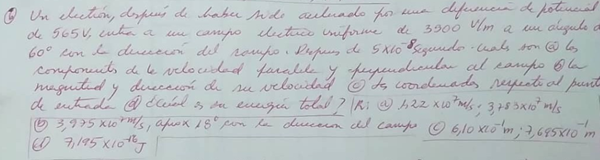 Un electrón, después de haber sido acelerado por una diferencia de potencial
de 565V, entra a un campo electrico uniforme de 3500 V/m a un ángulo de
60° con la dirección del campo. Despues de 5x10⁻⁸ segundo cuals son ⓐ las
components de la velocidad paralela y perpendicular al campo ⓑ la
magnitud y dirección de su velocidad ⓒ Las coordenadas, respecto al punto
de entrada ⓓ Cuál es su energia total? R: ⓐ 1,22 x10⁷m/s; 3,783x10⁷m/s
ⓑ 3,975x10⁷m/s, aprox 18° con la direccion del campo ⓒ 6,10x10⁻¹m; 7,695x10⁻¹m
ⓓ 7,195x10⁻¹⁶J